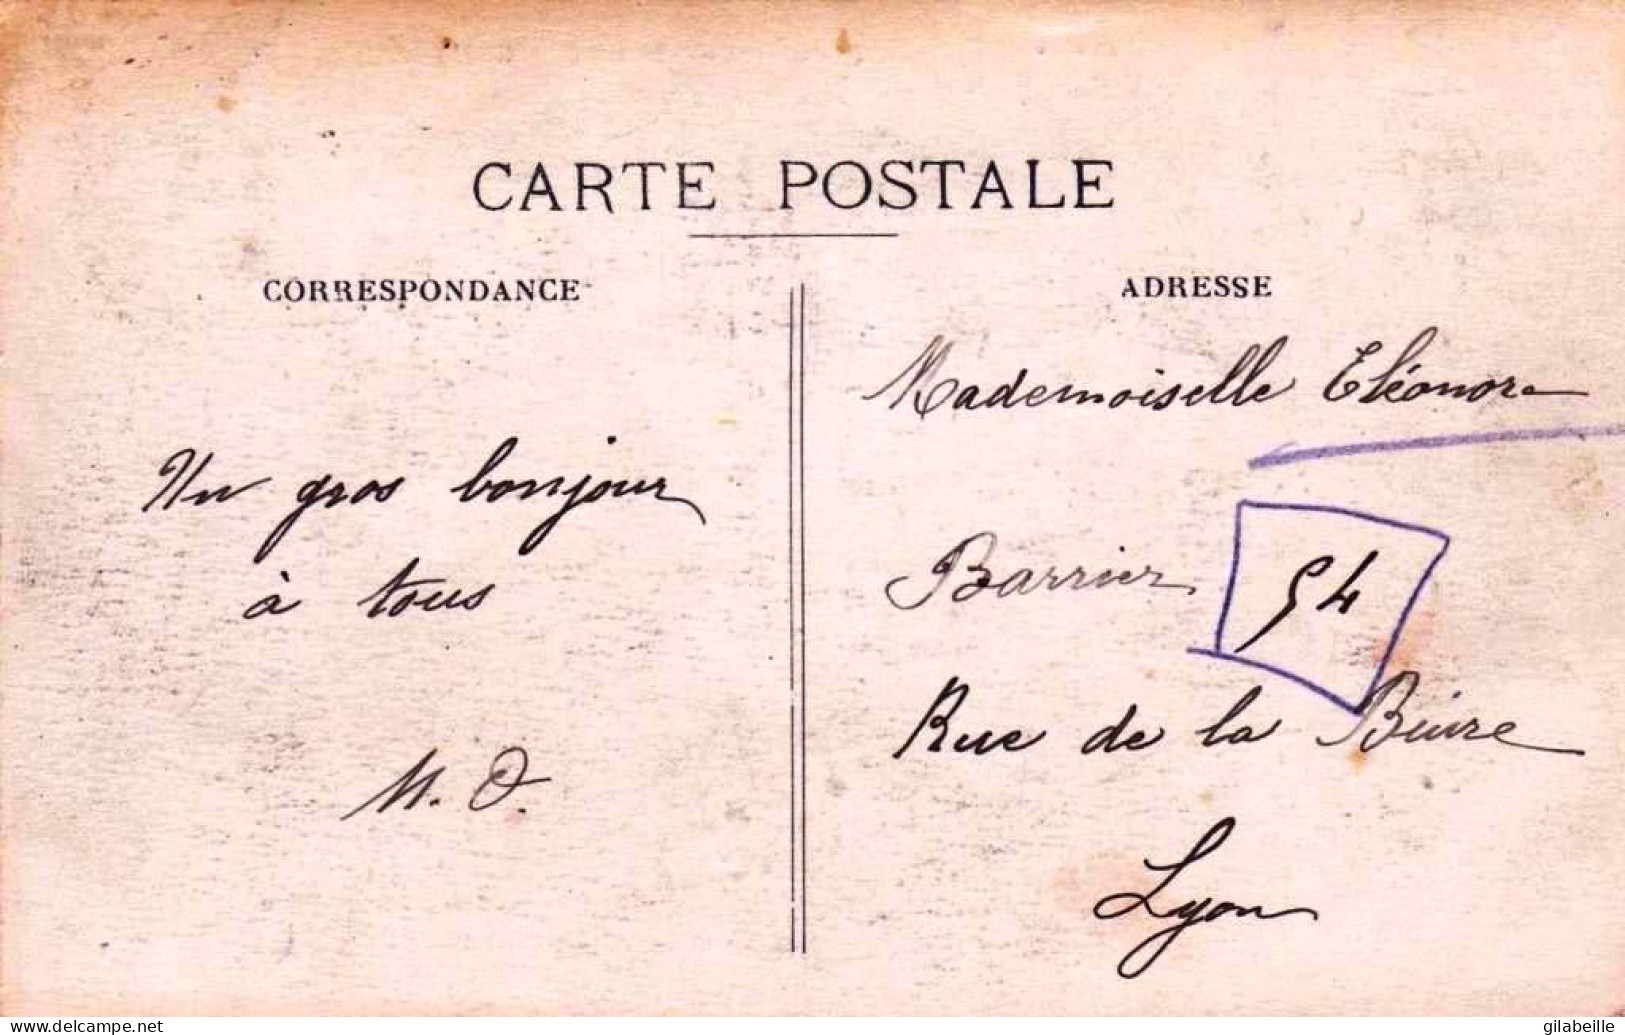 CARTE POSTALE
CORRESPONDANCE
ADRESSE
Un gros bonjour
à tous
M. O.
Mademoiselle Eléonore
Barrier 54
Rue de la Buire
Lyon
www.delcampe.net
gilabeille